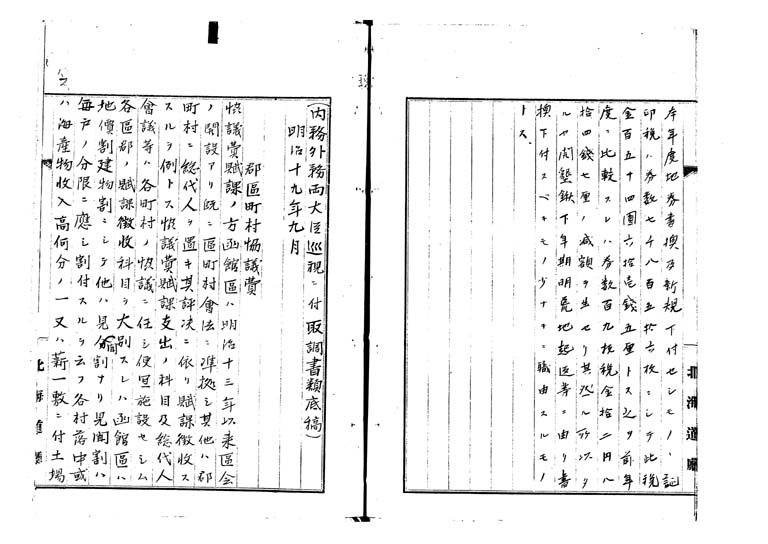 本年度地券書換及新規下付セシモノヽ証
印税ハ券数七千八百五拾六枚ニシテ此税
金百五十四圓六拾壱銭五厘トス之ヲ前年
度ニ比較スレハ券数百九枚税金拾二円八
拾四銭七厘ノ減額ヲ生セリ其然ル所以ノ
ルヤ開墾鍬下年期明荒地起返等ニ由リ書
換下付スベキモノヽ少ナキニ職由スルモノ
トス
北海道廳
(内務外務両大臣巡視ニ付取調書類底稿)
明治十九年九月
郡區町村協議費
協議費賦課ノ方函館區ハ明治十三年以来區会
ノ開設アリ既ニ區町村會法ニ準拠シ其他ハ郡
町村ニ総代人ヲ置キ其評决ニ依リ賦課徴收ス
スルヲ例トス協議費賦課支出ノ科目及総代人
會議等ハ各町村ノ協議ニ任シ便宜施設セシム
各區郡ノ賦課徴收科目ヲ大別スレハ函館區ハ
地價割建物割ニシテ他ハ見聞割ナリ見聞割ハ
毎戸ノ分限ニ應シ割付スルヲ云フ各村落中或
ハ海産物収入高何分ノ一又ハ薪一敷ニ付土場
北海道廳